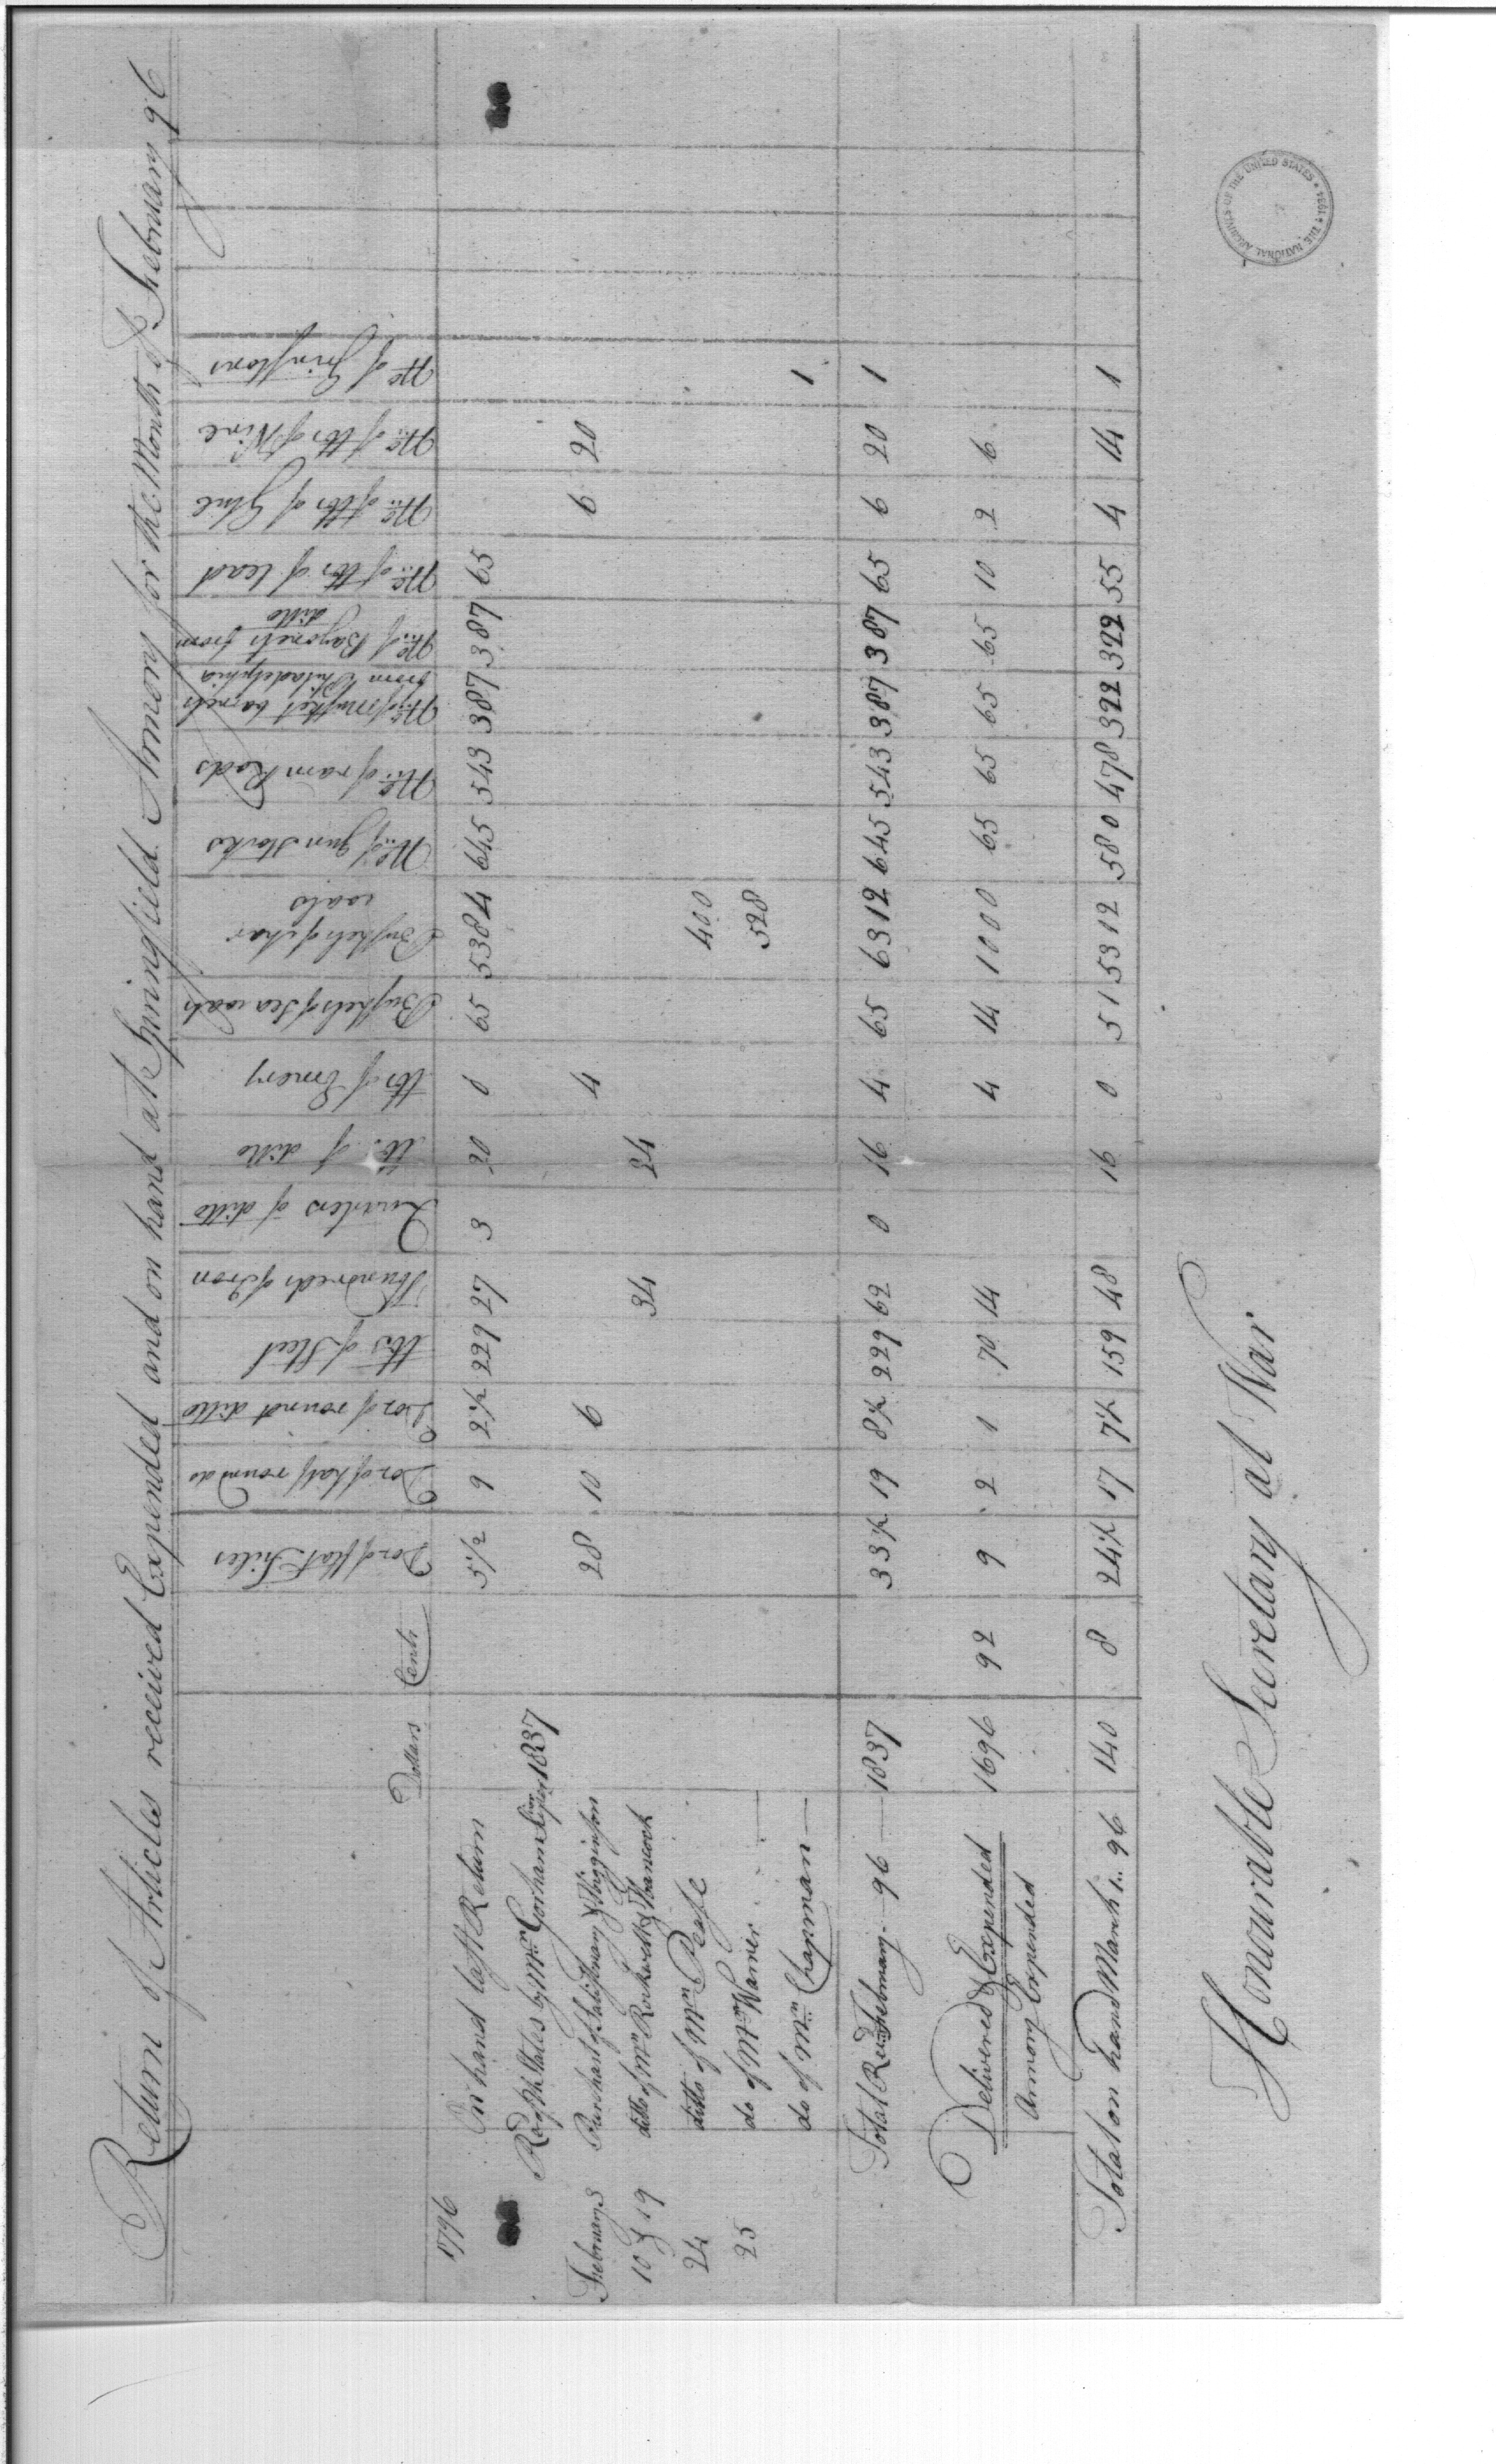 Return of Articles received Expended and on hand at Springfield Armory for the Month of February 96
Dollars Cents Doz of flat Files Doz of half round do Doz of round ditto lbs of Steel Hundreds of Iron Quarters of ditto lb. of ditto lbs of Emery Bushels of Sea coals Bushels of char coals No. of Gun Stocks No. of ram Rods No. of Musket barrels from Philadelphia No. of Bayonets from ditto No. of lbs of lead No. of lbs of Glue No. of lbs of Wire No. of Grinstons
1796 On hand last Return 5½ 9 2½ 229 27 3 20 0 65 5384 645 543 387 387 65
Recd of the States by Mr. Gorham 1837
February 3 Purchasd of Salisbury & Higginson 28 10 6 4 6 20
10 & 19 ditto of Mr Rockwell & Hancock 34 24
24 ditto of Mr. Pease 400
25 do of Mr Warner 528
do of Mr. Chapman 1
Total Recd February 96 1837 33½ 19 8½ 229 62 0 16 4 65 6312 645 543 387 387 65 6 20 1
Delivered & Expended
Armory Expended 1696 92 9 2 1 70 14 4 14 1000 65 65 65 65 10 2 6
Total on hand March 1.. 96 140 8 24½ 17 7½ 159 48 16 0 51 5312 580 478 322 322 55 4 14 1
Honourable Secretary at War
THE NATIONAL ARCHIVES OF THE UNITED STATES 1934